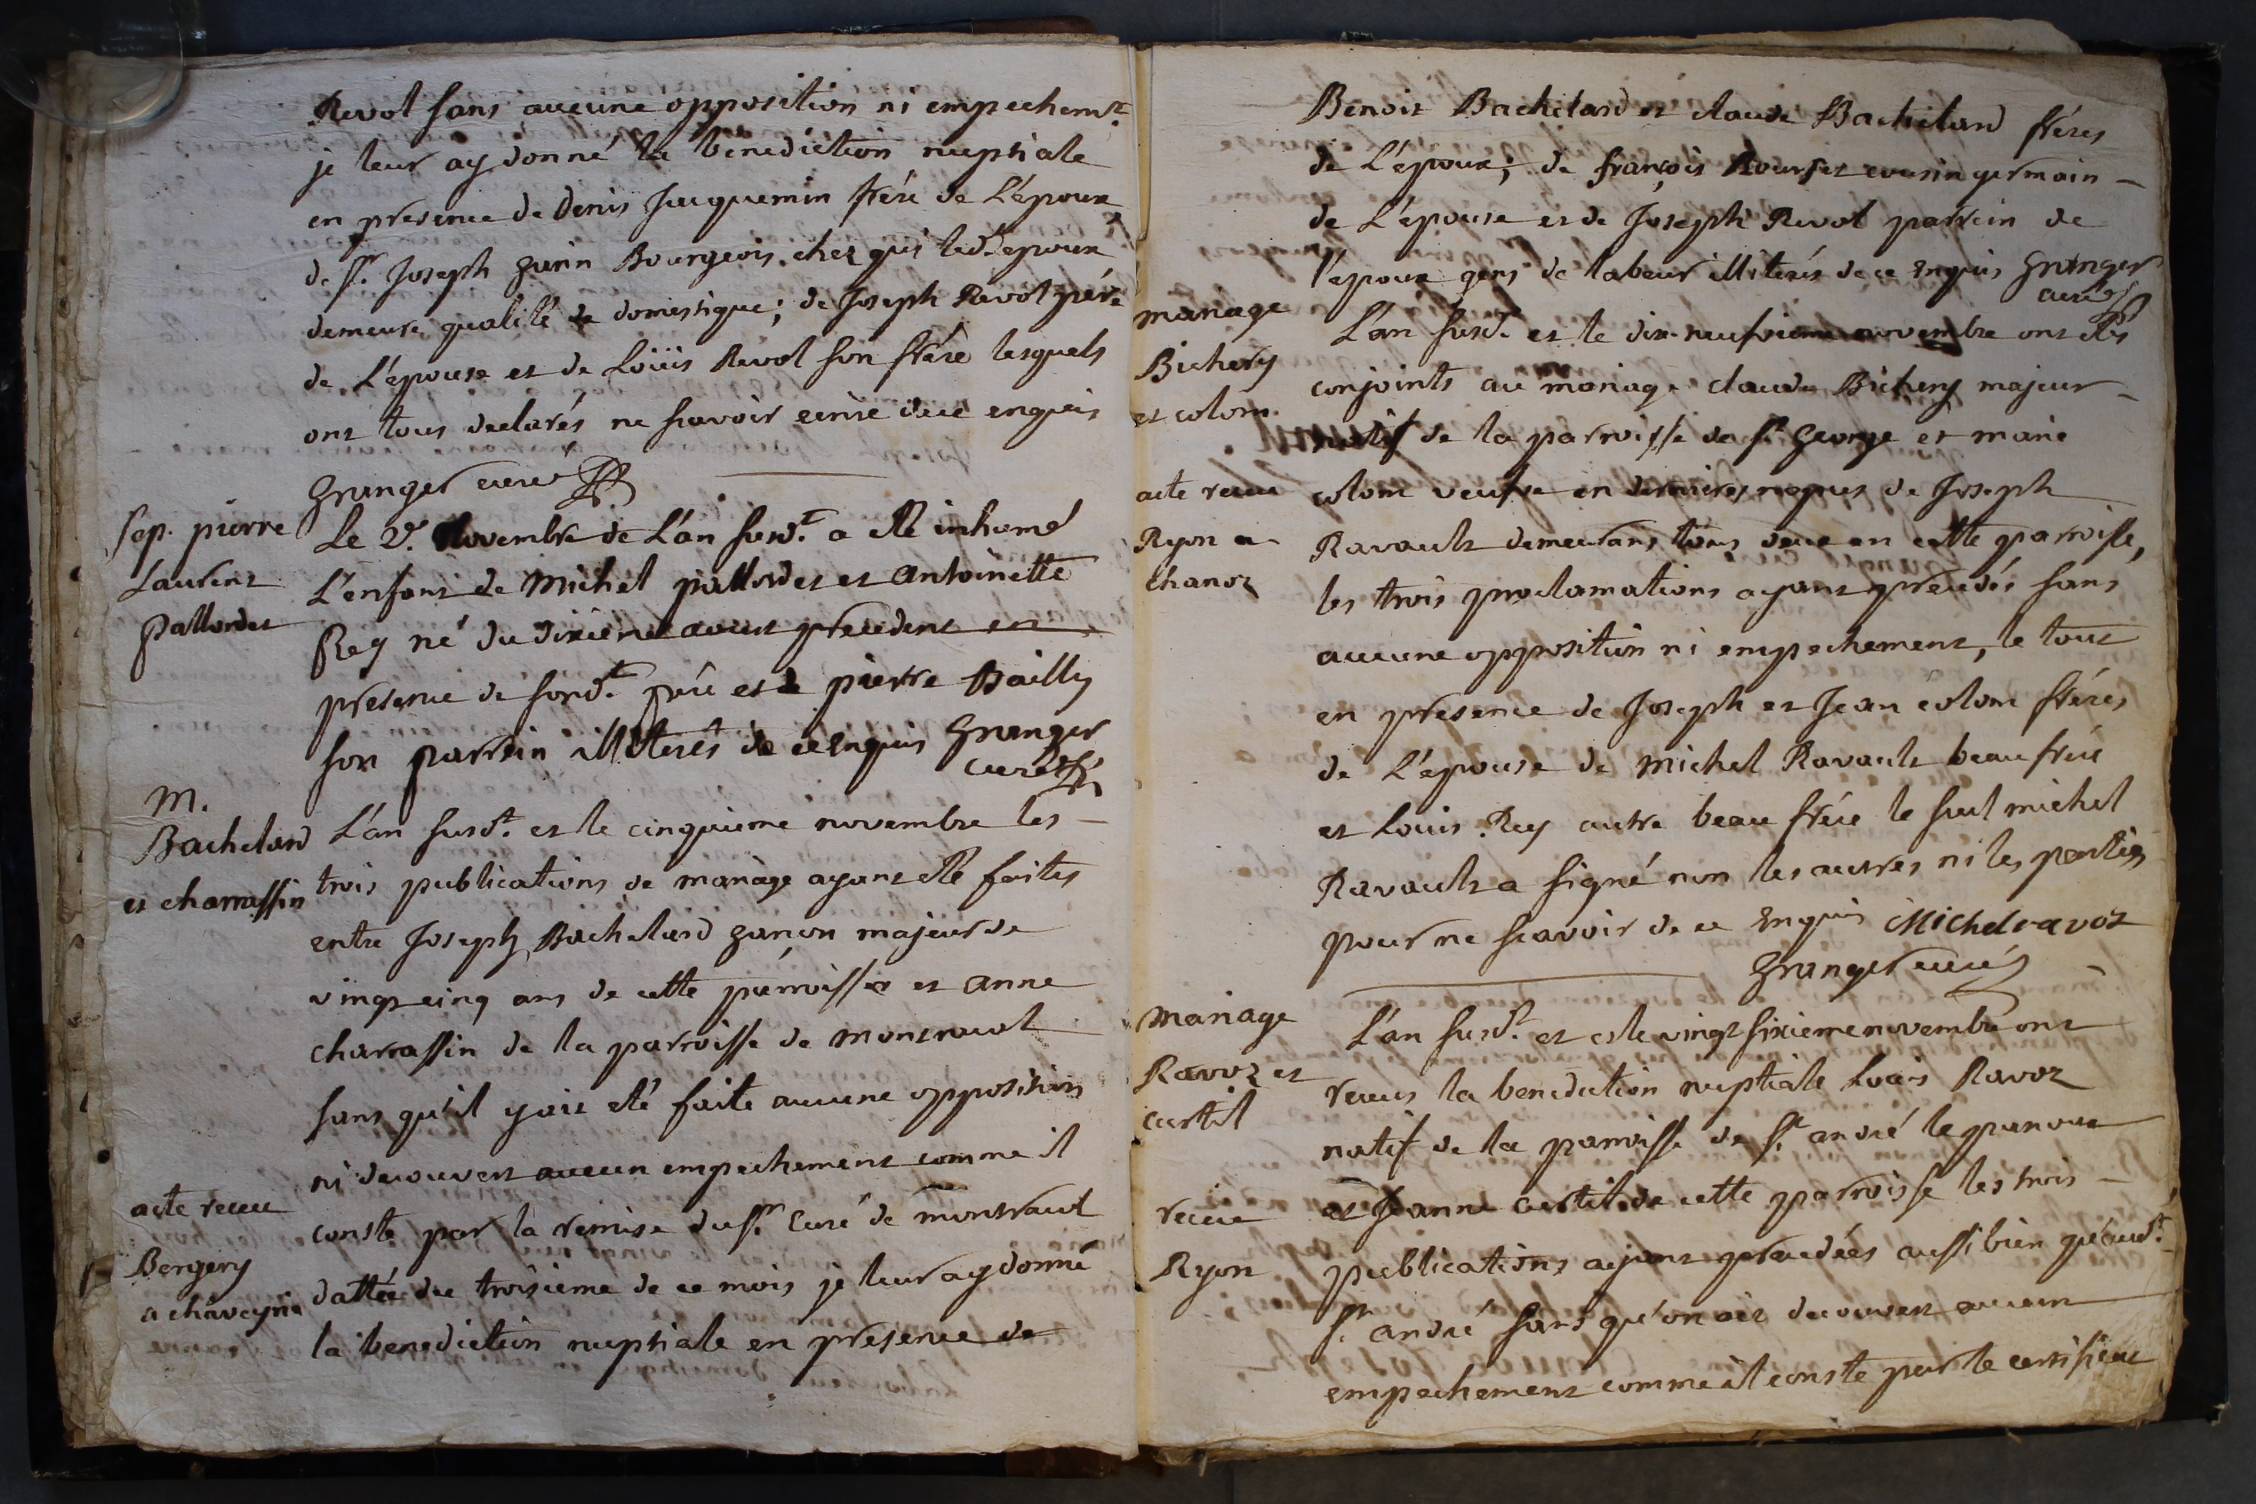 Revol sans aucune opposition ni empechemt.
je leur ay donné la benediction nuptiale
en presence de Denis Jacquemin frère de L'époux
de Sr. Joseph Bourgeois chez qui led. epoux
demeure qualité de domestique; de Joseph Revol père
de L'épouse et de Loüis Revol son frère lesquels
ont tous declarés ne scavoir ecrire de ce enquis
Granger curé
Sep. pierre
Laurent
Pallordet
Le 2e. Novembre de L'an susdt. a été inhumé
L'enfant de Michel pallordet et Antoinette
Rey né du dixieme aoust precedent en
presence de sondt. père et de pierre Bailly
son parrein illiterés de ce enquis Granger
curé
M.
Bachelard
et charrassin
L'an susdt. et le cinquieme novembre les
trois publications de mariage ayant été faites
entre Joseph Bachelard garçon majeur de
vingt cinq ans de cette parroisse et anne
charrassin de la parroisse de montraul
sans qu'il y ait eté faite aucune opposition
ni decouvert aucun empechement comme il
acte receu
conste par la remise du Sr. Curé de montraul
Bergery
a chaveyria
dattée du troisieme de ce mois je leur ay donné
la benediction nuptiale en presence de
Benoit Bachelard et claude Bachelard frères
de L'époux; de françois cousin germain
de L'épouse et de Joseph Revol parrein de
l'époux gens de labeur illiterés de ce enquis Granger
curé
mariage
Bichery
et colom
L'an susdt. et le dix-neufvieme novembre ont étés
conjoints au mariage claude Bichery majeur
natif de la parroisse de St George et marie
acte receu
Ryon a
chanoz
colom veufve en dernieres nopces de Joseph
Ravault demeurans tous deux en cette parroisse,
les trois proclamations ayant precedés sans
aucune opposition ni empechement, le tout
en presence de Joseph et Jean colom frères
de L'epouse de Michel Ravault beau frère
et Louis Rey autre beau frère le seul michel
Ravault a signé non les autres ni les parties
pour ne scavoir de ce enquis Michel ravoz
Granger curé
Mariage
Ravoz et
curtil
L'an susdt. et le vingt sixieme novembre ont
receus la benediction nuptiale Louis Ravoz
natif de la parroisse de St. andré le panoux
receu
Ryon
et Jeanne curtil de cette parroisse les trois
publications ayant precedées aussi bien qu'audt.
St. andré sans qu'on ait decouvert aucun
empechement comme il conste par le certificat